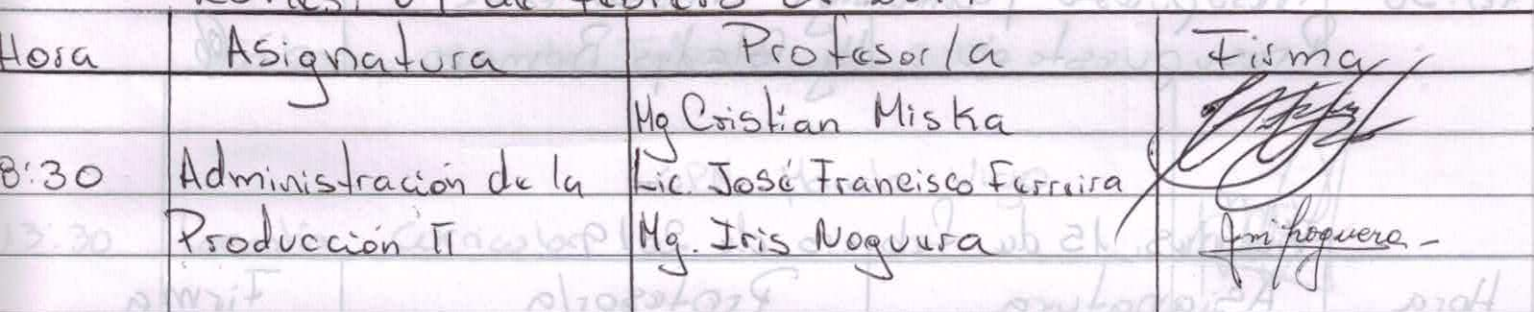 Hora Asignatura Profesor/a Firma
Mg Cristian Miska
8:30 Administración de la Lic. José Francisco Ferreira
Producción II Mg. Iris Noguera